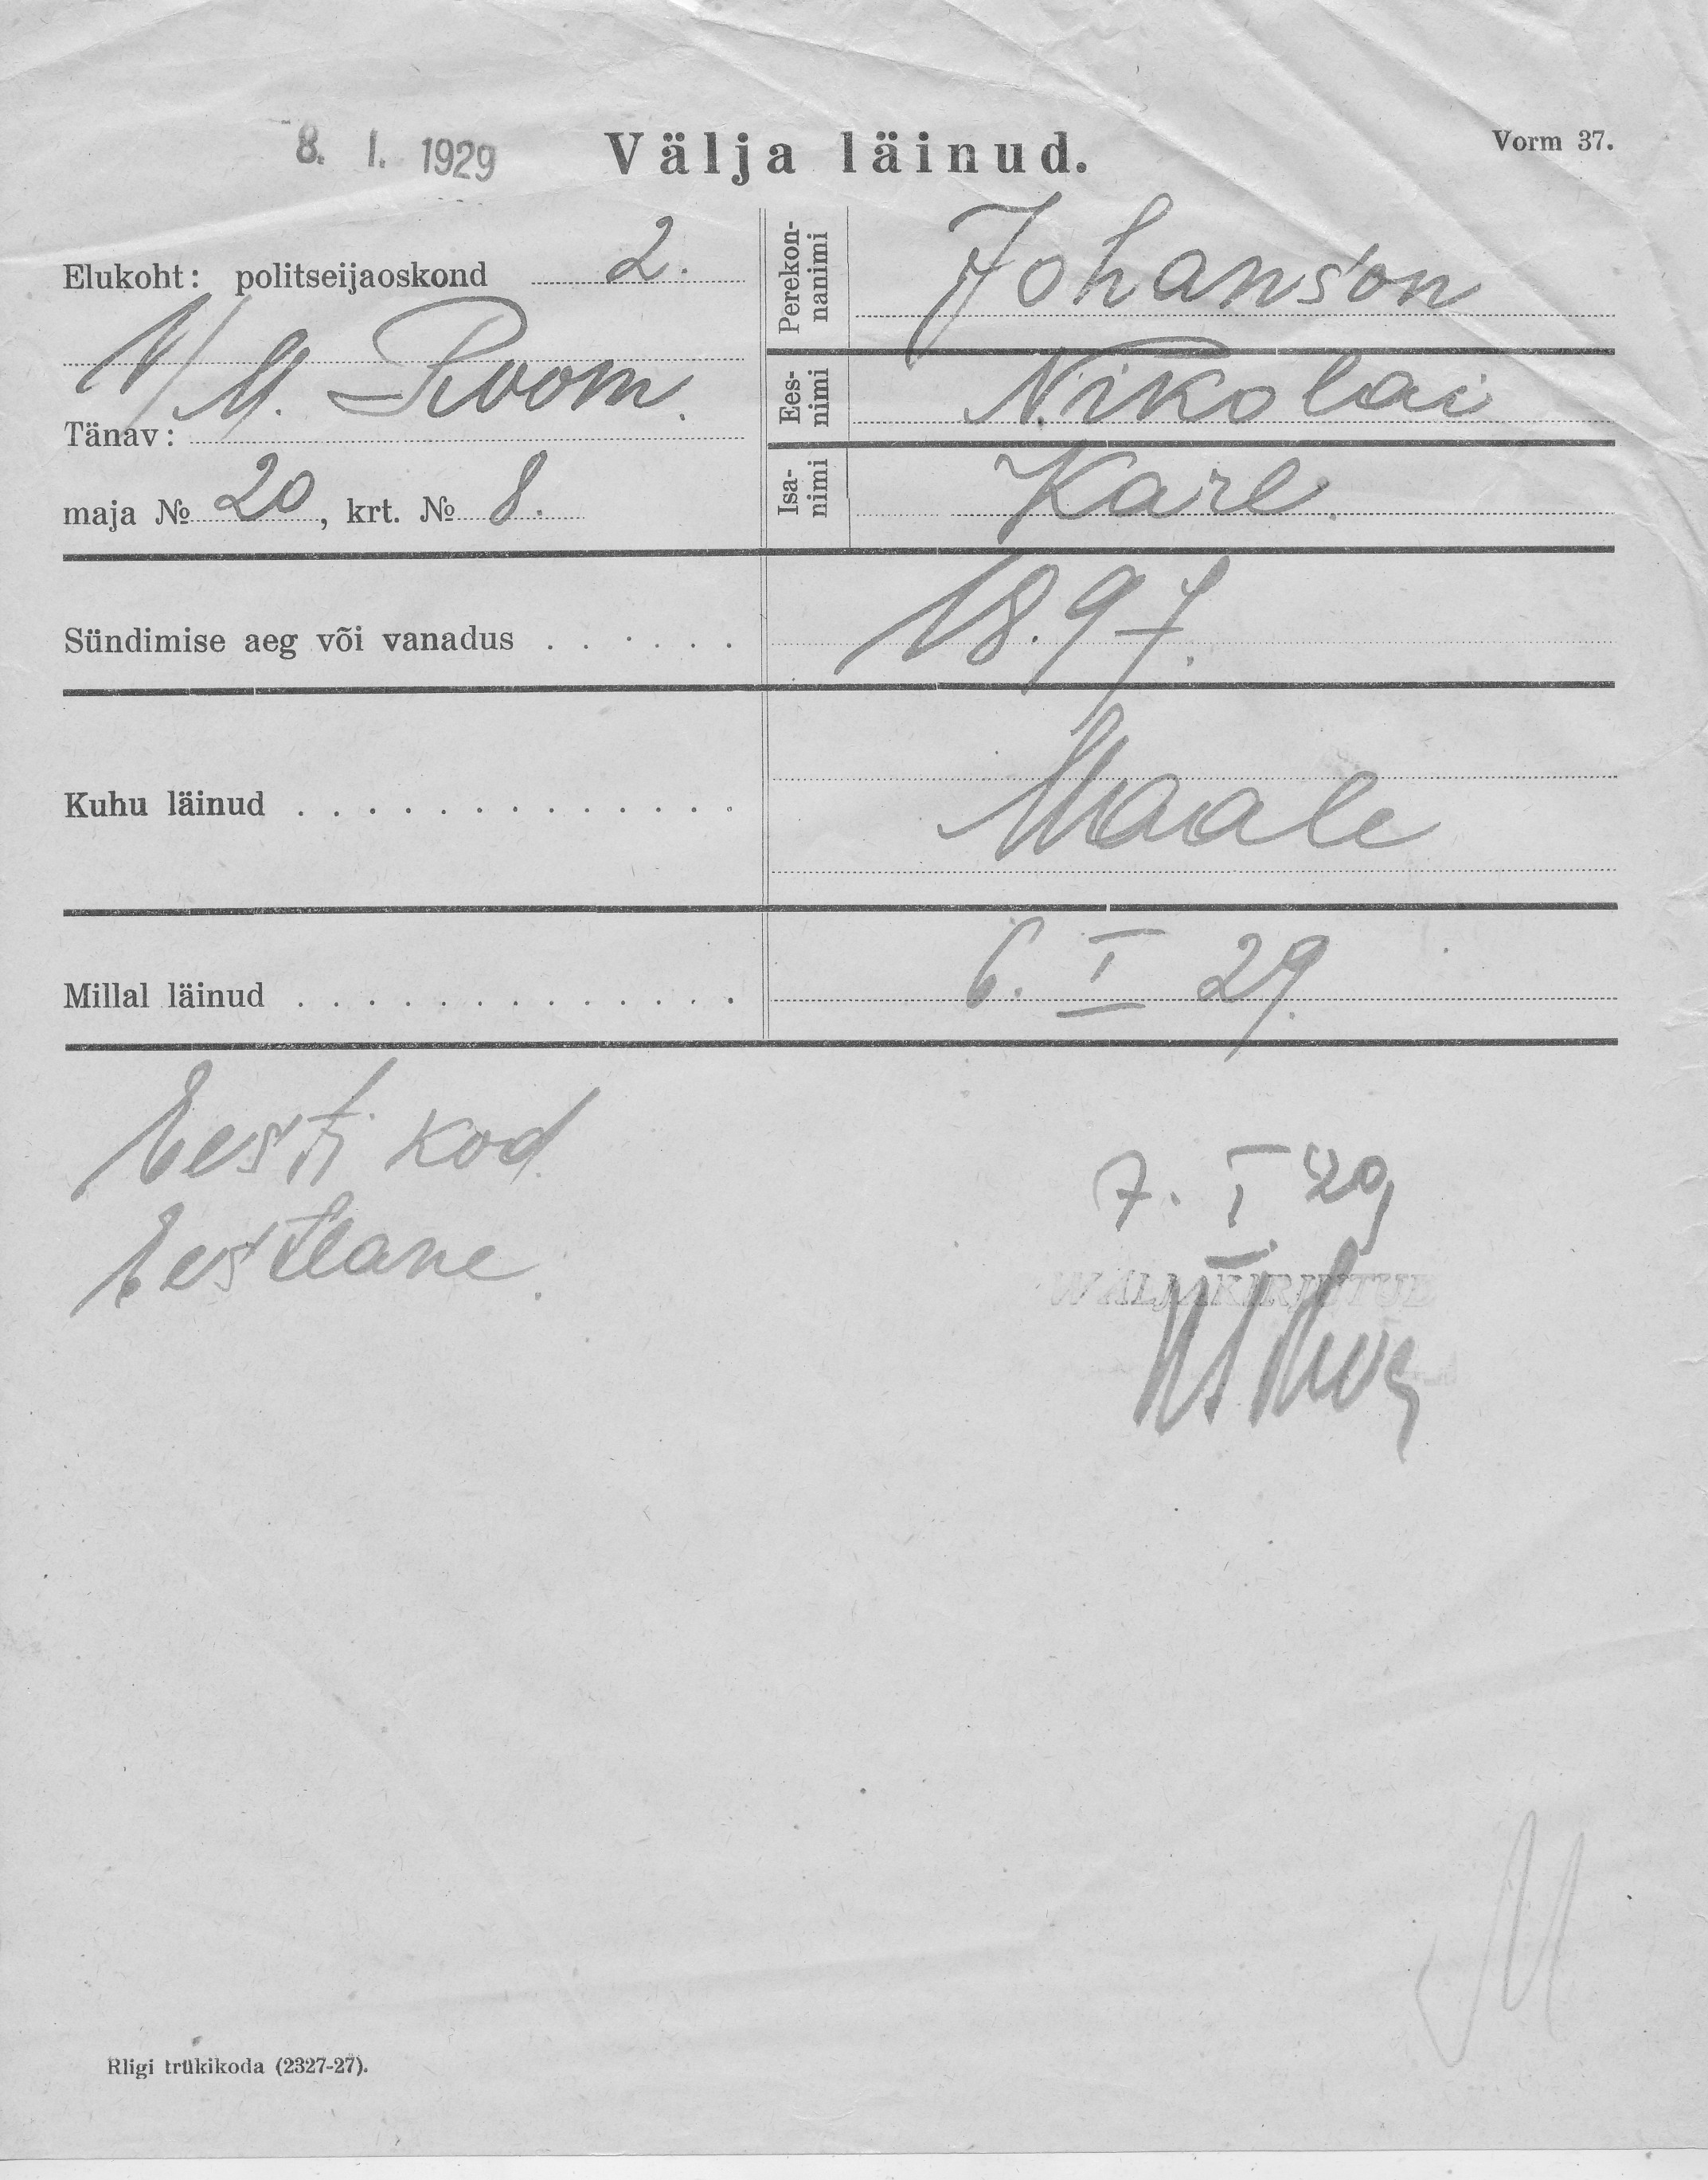 8. I. 1929
Välja läinud.
Vorm 37.
Elukoht: politseijaoskond 2.
V/M. Room.
Tänav:
maja № 20, krt. № 8.
Perekon-
nanimi
Johanson
Ees-
nimi
Nikolai
Isa-
nimi
Karl.
Sündimise aeg või vanadus . . . . . .
1897.
Kuhu läinud . . . . . . . . . . . . .
Maale
Millal läinud . . . . . . . . . . . . .
6. I 29.
Eesti kod.
Eestlane.
7. I 29
WÄLJAKIRJUTUD
M
Riigi trükikoda (2327-27).